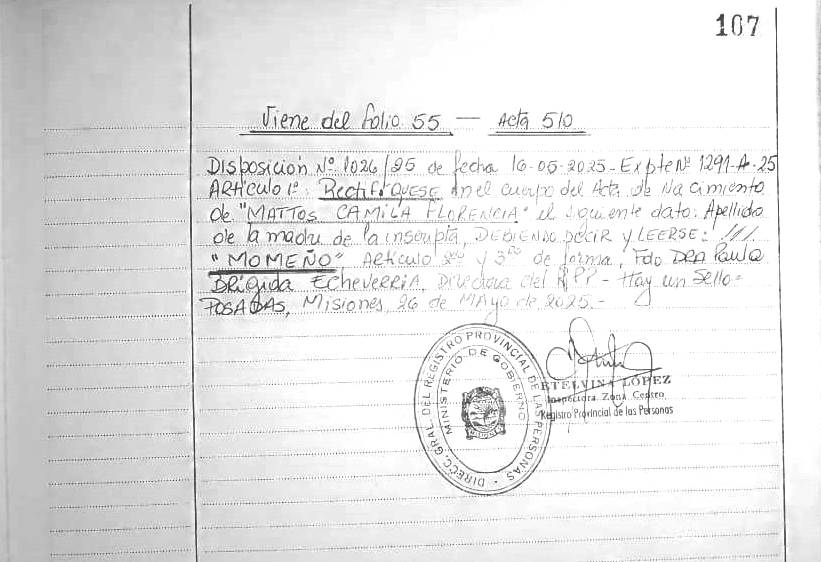 107
Viene del folio 55 — Acta 510
Disposición Nº 1026/25 de fecha 16-05-2025 - Expte Nº 1291-A-25
ARtículo 1º: RectifíQUESE en el cuerpo del Acta de Nacimiento
de "MATTOS CAMILA FLORENCIA" el siguiente dato: Apellido
de la madre de la inscripta, DEBIENDO DECIR y LEERSE: ///
"MOMEÑO" Artículo 2do y 3ro de forma. Fdo DRA Paula
Brígida EcheverRIA, Directora del RPP - Hay un Sello -
POSADAS, Misiones, 26 de MAyo de 2025.-
DIRECC. GRAL. DEL REGISTRO PROVINCIAL DE LAS PERSONAS
MINISTERIO DE GOBIERNO
ETELVINA LOPEZ
Inspectora Zona Centro
Registro Provincial de las Personas